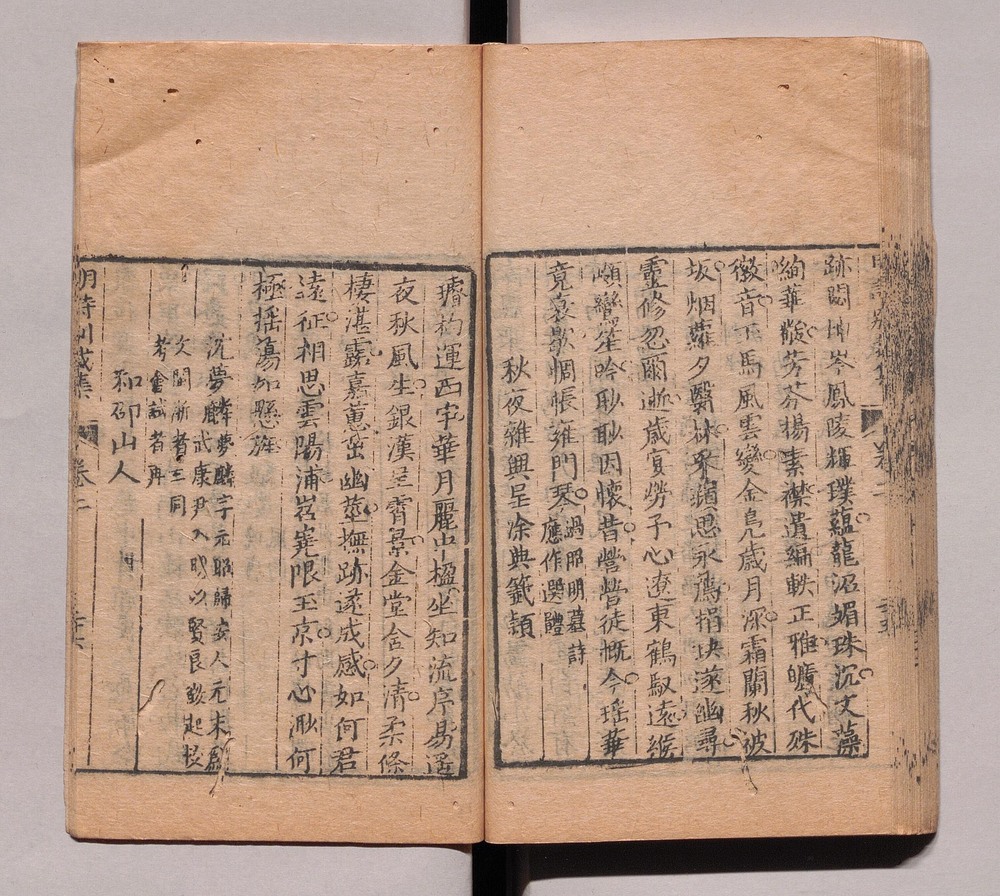 跡閟坤岑鳳陵輝璞蘊龍沼媚珠沉文藻
絢華散芳芬揚素襟遺編軼正雅曠代殊
徽音下馬風雲變金鳧歲月深霜關秋被
坂烟蘿夕翳林采蘋思永薦捐玦遂幽尋
靈修忽爾逝歲寅勞予心遼東鶴馭遠緱
嶺鸞笙吟耿耿因懷昔營營徒慨今瑤華
竟哀歇惆悵雍門琴
過昭明墓詩
應作選體
秋夜雜興呈涂典籤穎
璿杓運西宇華月麗中楹坐知流序易遥
夜秋風生銀漢呈霄景金堂含夕清柔條
棲湛露嘉蕙宻幽莖撫跡遂成感如何君
遠征相思雲陽浦岧嶤限玉京寸心渺何
極搖蕩如懸旌
沈夢麟
夢麟字元昭歸安人元末為
武康尹入明以賢良徵起校
文閩浙者三同
考會試者再
和卲山人
明詩別裁集
卷二